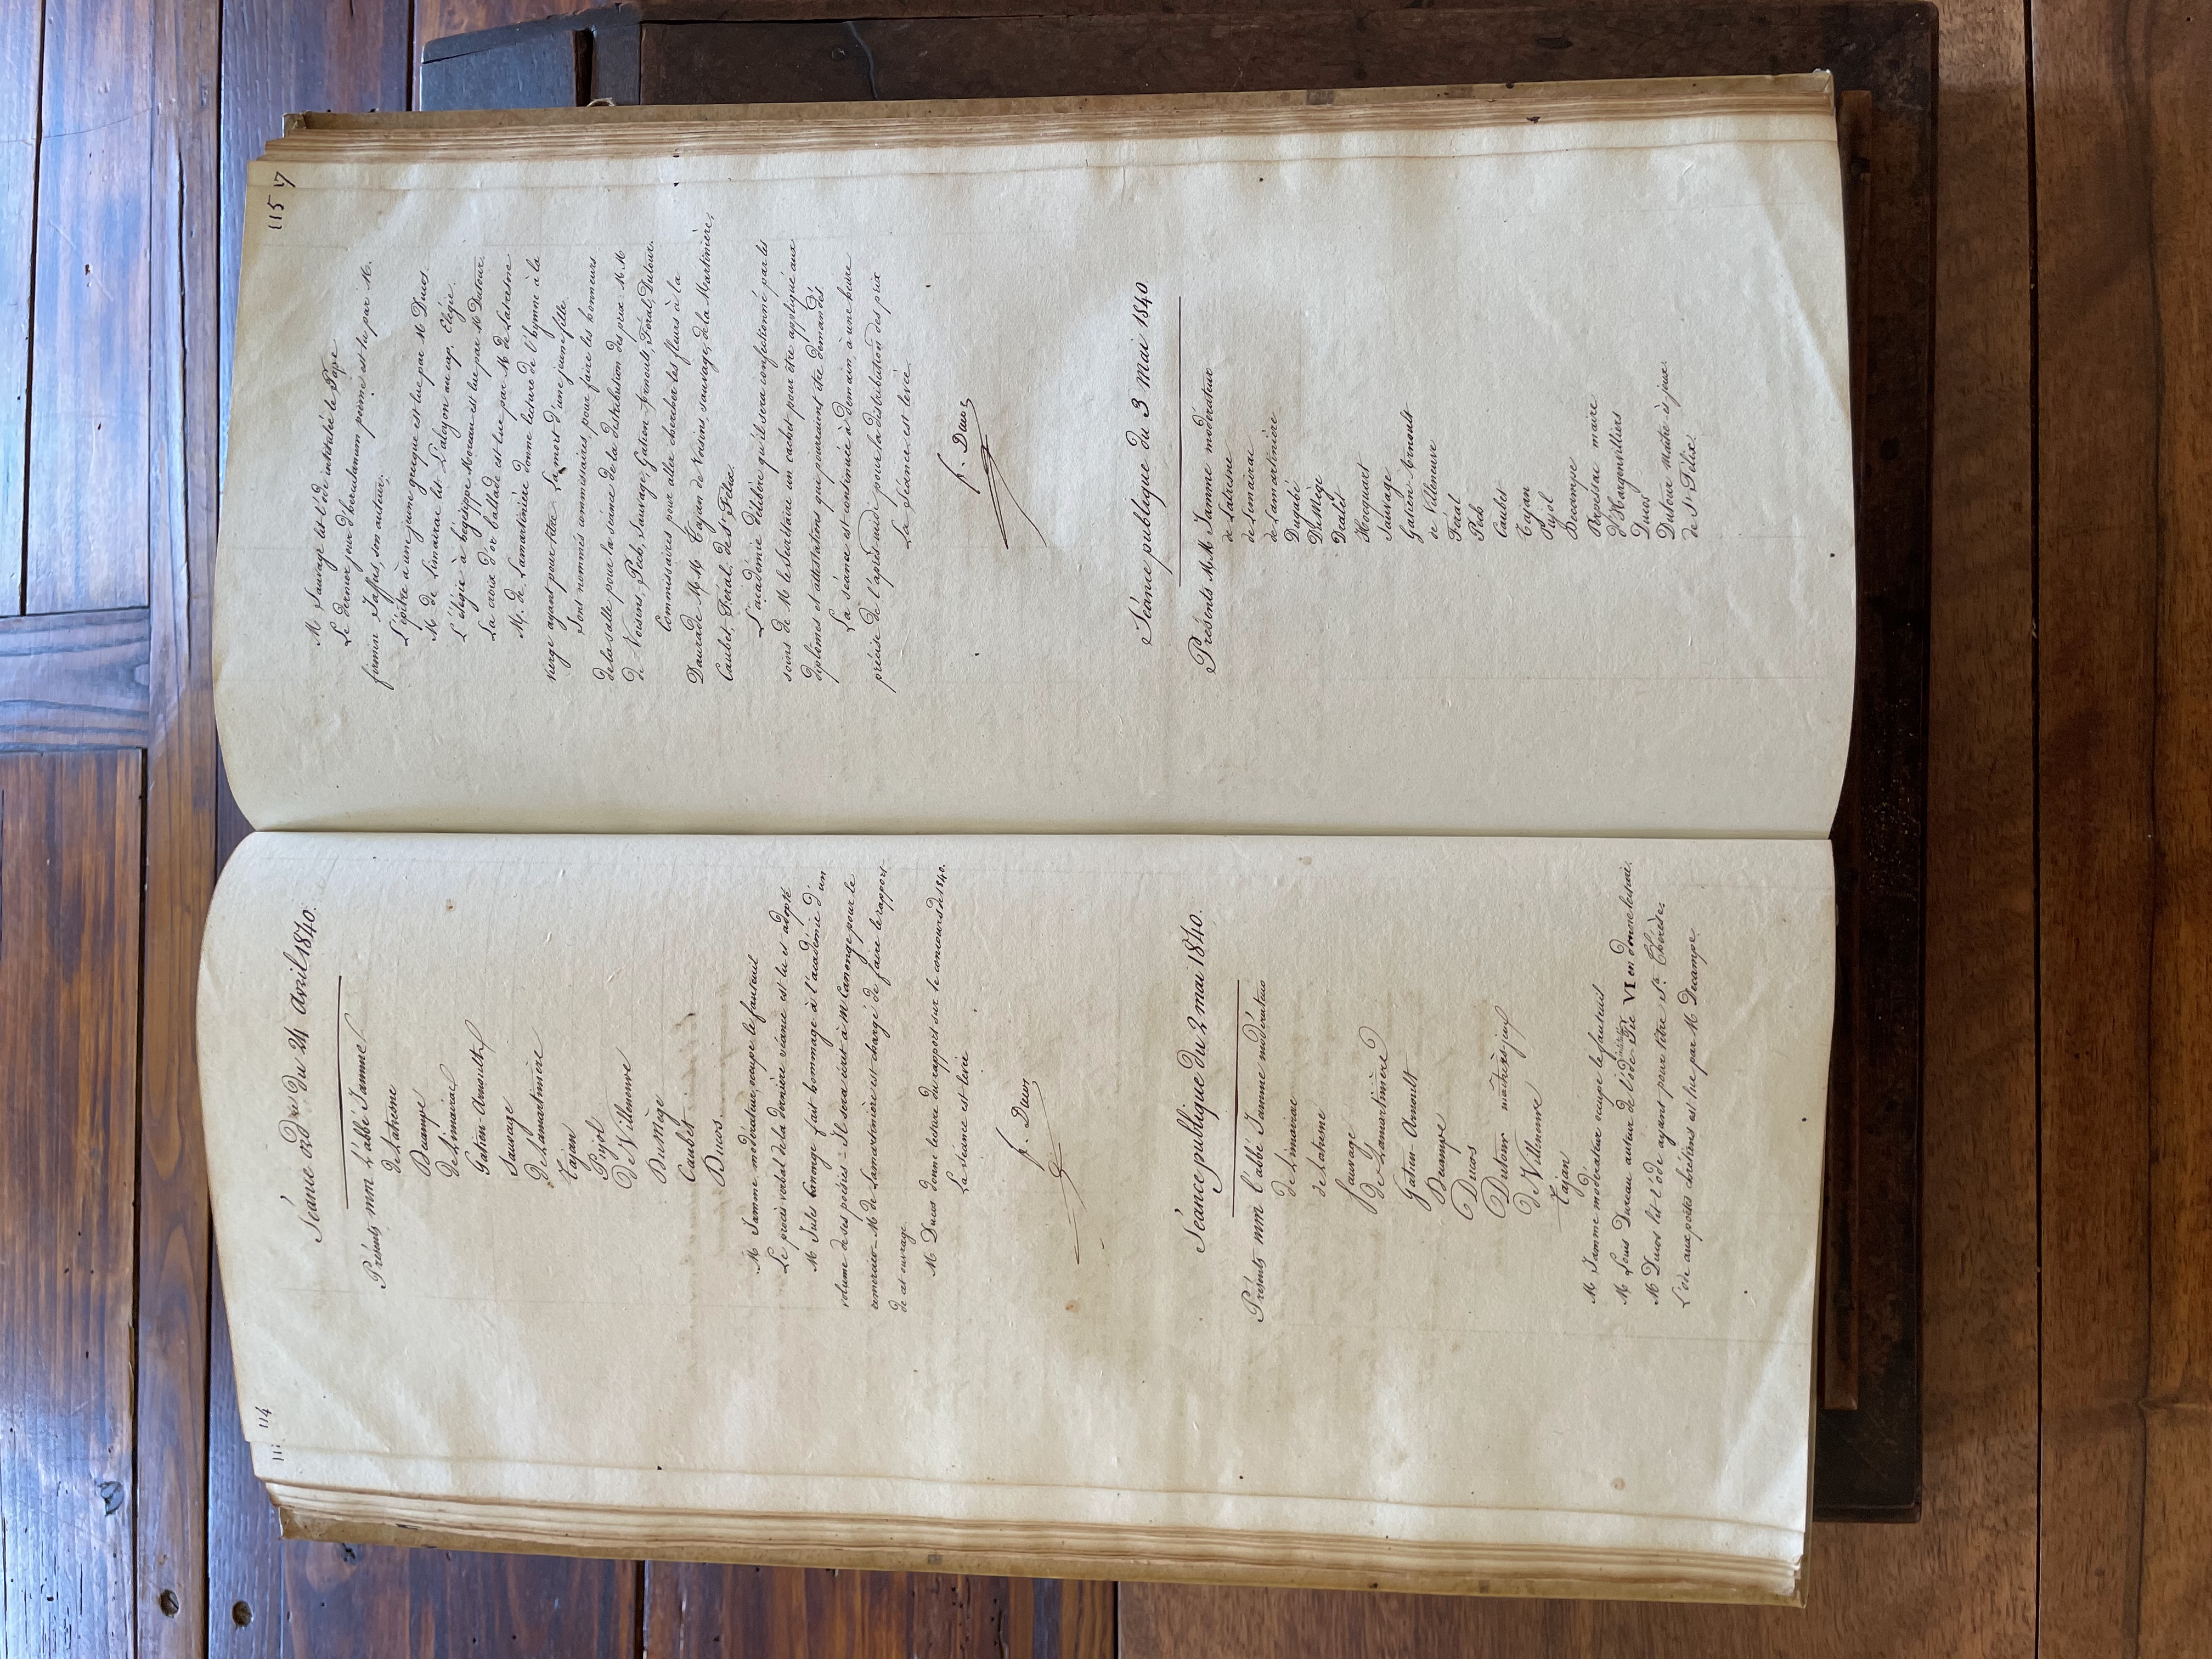 114
Séance ord re du 24 avril 1840.
Présents mm l'abbé Jamme
de Latresne
Decampe
de Limairac
Gatien-Arnoulth
Sauvage
De Lamartinière
Tajan
Pujol
De Villeneuve
Du Mège
Caubet
Ducos.
M Jamme modérateur, occupe le fauteuil
Le procès verbal de la dernière séance est lu et adopté
M Jules Canonge fait hommage à l'académie d'un
volume de ses poésies - Il sera écrit à M Canonge pour le
remercier - M de Lamartinière est chargé de faire le rapport
de cet ouvrage.
M Ducos donne lecture du rapport sur le concours de 1840.
La séance est levée
f. Ducos
Séance publique du 2 mai 1840.
Présents mm l'abbé Jamme modérateur
de Limairac
de Latresne
Sauvage
de Lamartinière
Gatien-Arnoult
Decampe
Ducos
Dutour maître ès jeux
De Villeneuve
Tajan
M Jamme modérateur occupe le fauteuil
M Louis Dureau auteur de l'ode Pie VI en donne lecture.
M Ducos lit l'ode ayant pour titre Ste Thérèse.
L'ode aux poètes chrétiens est lue par M Decampe
115
M Sauvage lit l'ode intitulée le Pape
Le dernier jour d'herculanum poème est lu par M.
firmin Jaffus, son auteur.
L'épitre à une jeune grecque est lue par M Ducos.
M de Limairac lit L'alcyon au cap. Elégie.
L'élégie à hégésippe Moreau est lue par M Dutour.
La croix d'or ballade est lue par M de Latresne
M. de Lamartinière donne lecture de l'hymne à la
vierge ayant pour titre La mort d'une jeune fille.
Sont nommés commissaires, pour faire les honneurs
de la salle pour la séance de la distribution des prix MM
de Voisins, Pech, Sauvage, Gatien-Arnoult, Féral, Dutour.
Commissaires pour aller chercher les fleurs à la
Daurade MM Tajan de Voisins, sauvage, de la Martinière,
Caubet, Féral, de St Félix.
L'académie délibère qu'il sera confectionné par les
soins de M le secrétaire un cachet pour être appliqué aux
diplômes et attestations que pourraient être demandés
La séance est continuée à demain, à une heure
précise de l'après midi pour la distribution des prix
La séance est levée
f. Ducos
Séance publique du 3 mai 1840
Présents MM Jamme modérateur
de Latresne
de Limairac
de Lamartinière
Dugabé
Du Mège
Decalet
Hocquart
Sauvage
Gatien-Arnoult
de Villeneuve
Féral
Pech
Caubet
Tajan
Pujol
Decampe
Perpessac maire
d'Hargenvilliers
Ducos
Dutour Maître ès jeux
de St Félix.